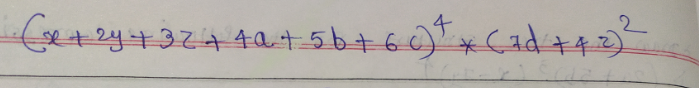 (x+2y+3z+4a+5b+6c)^4 * (7d+4z)^2